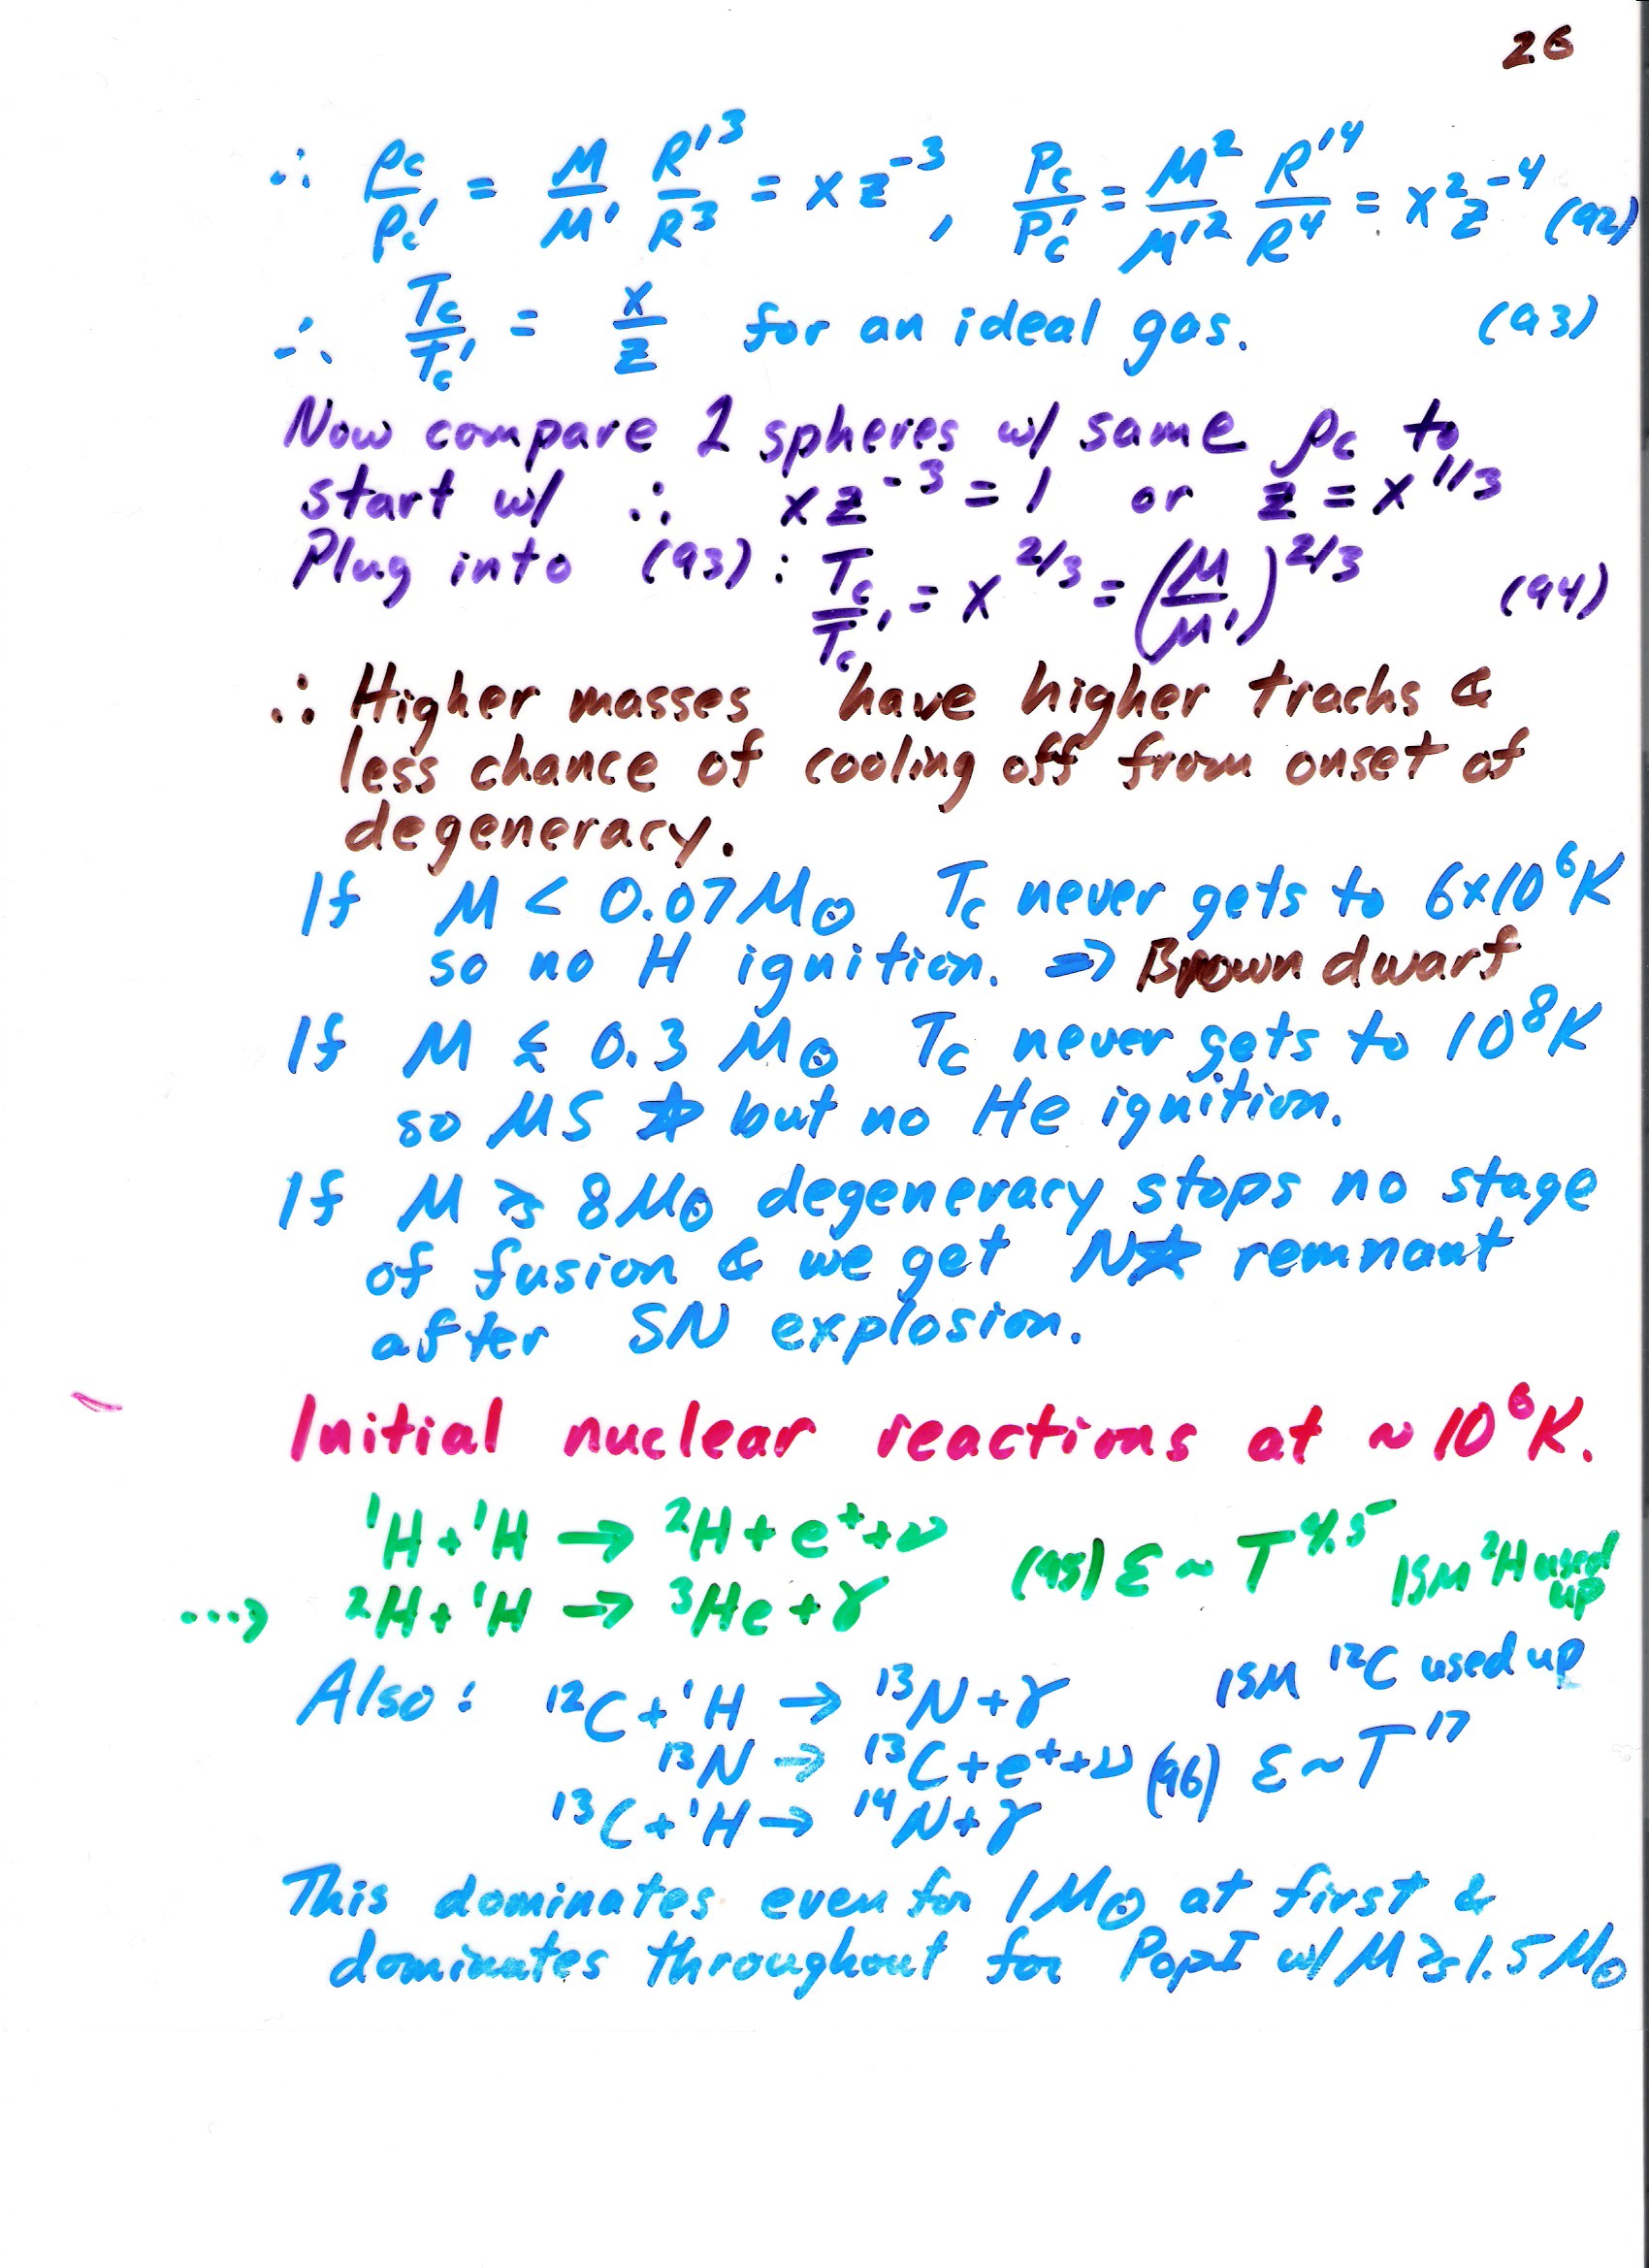 26
∴ ρc/ρc' = M/M' R'³/R³ = x z⁻³, Pc/Pc' = M²/M'² R'⁴/R⁴ = x² z⁻⁴ (92)
∴ Tc/Tc' = x/z for an ideal gas. (93)
Now compare 2 spheres w/ same ρc to
start w/ ∴ x z⁻³ = 1 or z = x^1/3
Plug into (93): Tc/Tc' = x^2/3 = (M/M')^2/3 (94)
∴ Higher masses have higher tracks &
less chance of cooling off from onset of
degeneracy.
If M < 0.07 M⊙ Tc never gets to 6x10⁶K
so no H ignition. ⇒ Brown dwarf
If M ≲ 0.3 M⊙ Tc never gets to 10⁸K
so MS ☆ but no He ignition.
If M ≳ 8M⊙ degeneracy stops no stage
of fusion & we get N☆ remnant
after SN explosion.
Initial nuclear reactions at ~10⁶K.
¹H + ¹H → ²H + e⁺ + ν (95) ε ~ T^4.5 ISM ²H used up
...→ ²H + ¹H → ³He + γ
Also: ¹²C + ¹H → ¹³N + γ ISM ¹²C used up
¹³N → ¹³C + e⁺ + ν (96) ε ~ T¹⁷
¹³C + ¹H → ¹⁴N + γ
This dominates even for 1M⊙ at first &
dominates throughout for PopI w/ M ≳ 1.5 M⊙